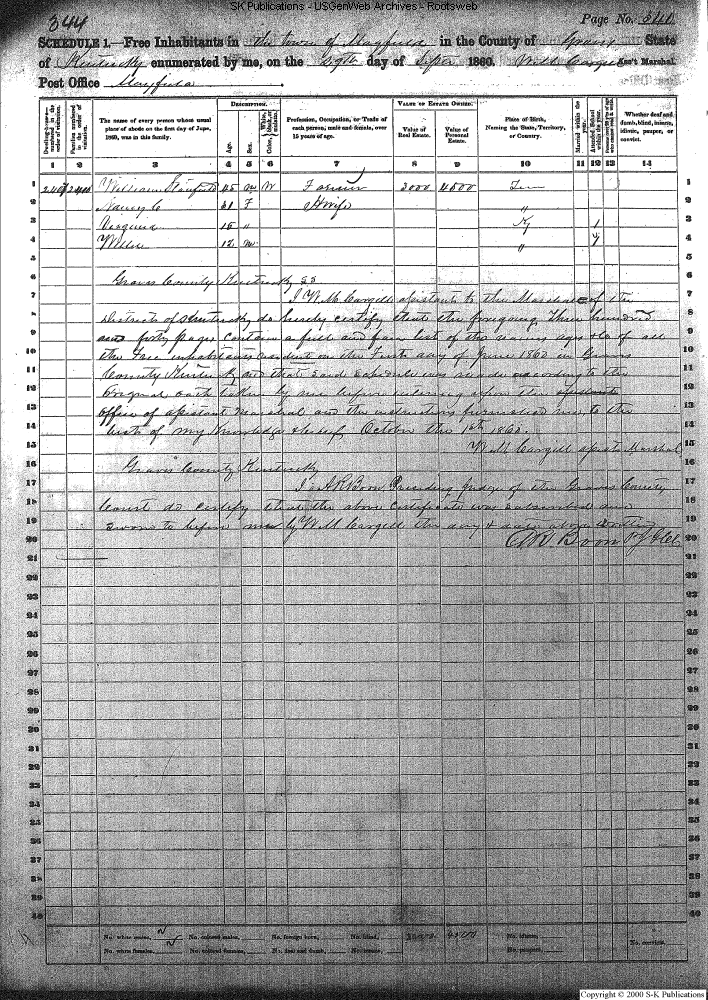 SK Publications - USGenWeb Archives - Rootsweb
344
Page No.
SCHEDULE 1.—Free Inhabitants in the town of Mayfield in the County of Graves State
of Kentucky enumerated by me, on the day of 1860. Ass't Marshal.
Post Office Mayfield
DESCRIPTION.
VALUE OF ESTATE OWNED.
Dwelling-houses—numbered in the order of visitation.
Families numbered in the order of visitation.
The name of every person whose usual place of abode on the first day of June, 1860, was in this family.
Age.
Sex.
White, black, or mulatto. Color,
Profession, Occupation, or Trade of each person, male and female, over 15 years of age.
Value of Real Estate.
Value of Personal Estate.
Place of Birth, Naming the State, Territory, or Country.
Married within the year.
Attended School within the year.
Whether deaf and dumb, blind, insane, idiotic, pauper, or convict.
1 2 3 4 5 6 7 8 9 10 11 12 13 14
1 William 45 m W Farmer 3000 4500 Ten 1
2 Nancy C 31 F H Wife " 2
3 Virginia 15 " Ky 1 3
4 Willie 12 m " 1 4
5 5
6 Graves County Kentucky SS 6
7 I W. M. Cargell assistant to the Marshal of the 7
8 District of Kentucky do hereby certify that the foregoing three hundred 8
9 and forty pages contain a full and list of the names ages &c of all 9
10 the Free inhabitants resident on the First day of June 1860 in Graves 10
11 County Kentucky and that said schedule was made according to the 11
12 original oath taken by me before entering upon the 12
13 office of assistant Marshal and the instructions furnished me to the 13
14 best of my Knowledge & belief October the 1860. 14
15 W M Cargell assist Marshal 15
16 Graves County Kentucky 16
17 I A R Boon Presiding Judge of the Graves County 17
18 Court do certify that the above certificate was subscribed and 18
19 sworn to before me by W M Cargell the day & date above written 19
20 A R Boon 20
21 21
22 22
23 23
24 24
25 25
26 26
27 27
28 28
29 29
30 30
31 31
32 32
33 33
34 34
35 35
36 36
37 37
38 38
39 39
40 40
No. white males, 2 No. colored males, No. foreign born, No. blind, 4500 No. idiotic,
No. white females, 2 No. colored females, No. deaf and dumb, No. insane, No. paupers, No. convicts,
Copyright © 2000 S-K Publications